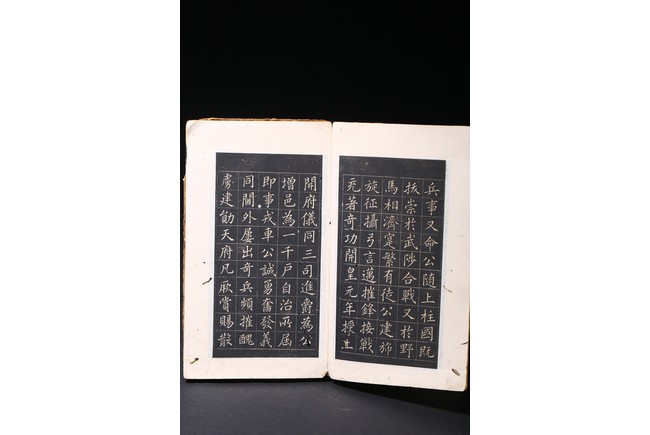 兵事又命公隨上柱國既
拔崇於武陟合戰又於野
馬相濟寔繁有徒公建旆
旋征攝弓言邁摧鋒接戰
克著奇功開皇元年授上
開府儀同三司進爵為公
增邑為一千戶自治所屆
即事戎車公誠勇奮發義
同閫外屢出奇兵頻摧醜
虜建勛天府凡厥賞賜散